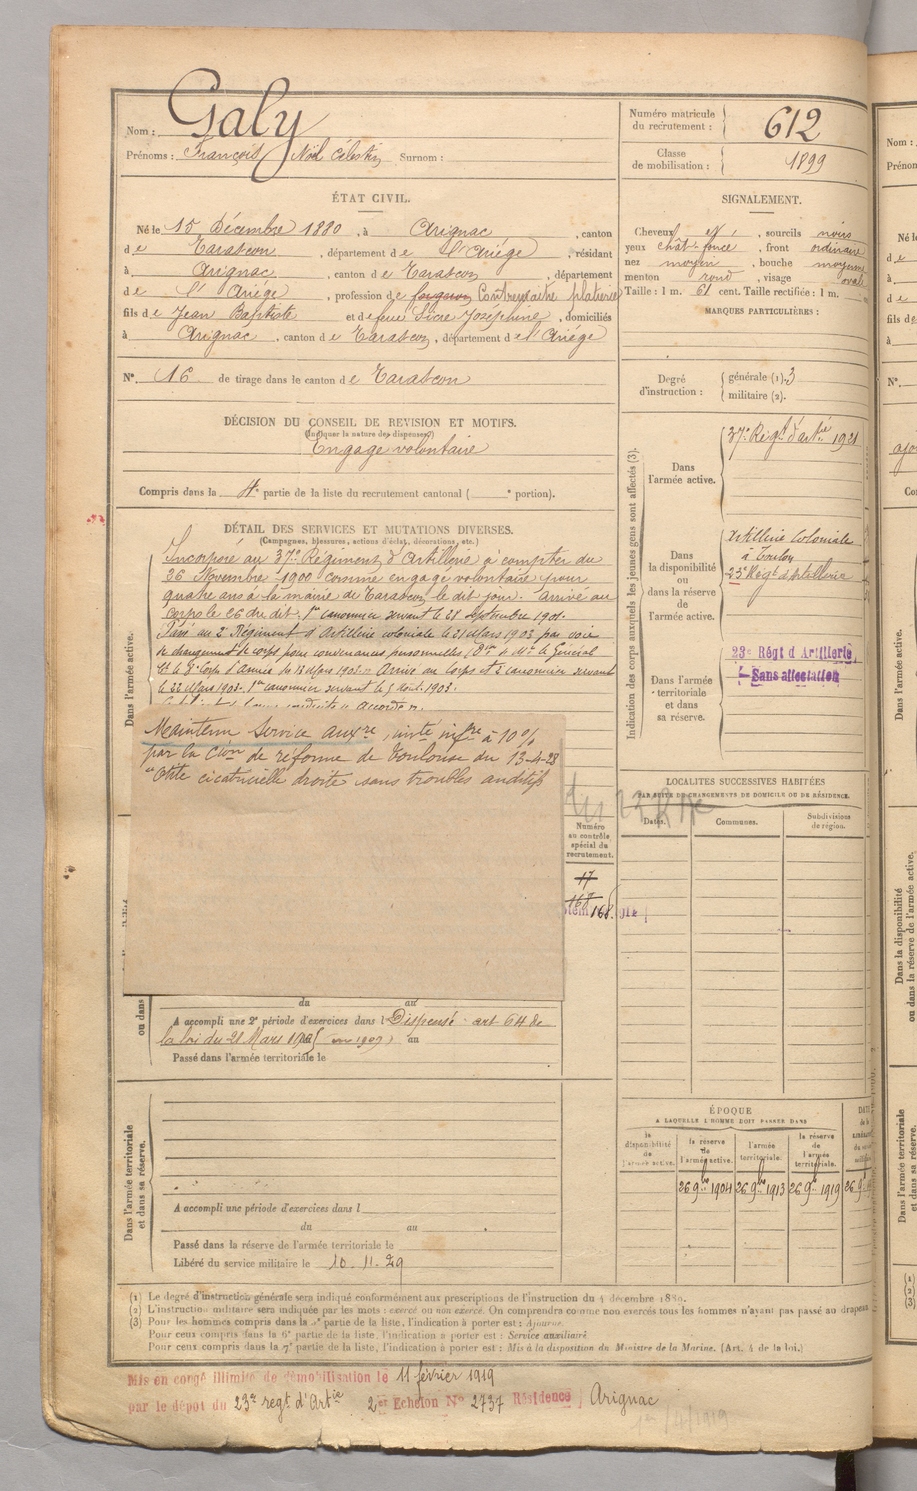 Nom : Galy
Prénoms : François Noël Célestin Surnom :
Numéro matricule du recrutement : 612
Classe de mobilisation : 1899
ÉTAT CIVIL.
Né le 15 Décembre 1880, à Arignac, canton
de Tarascon, département de l'Ariège, résidant
à Arignac, canton de Tarascon, département
de l'Ariège, profession de Contremaitre platrier
fils de Jean Baptiste et de feue Sicre Joséphine, domiciliés
à Arignac, canton de Tarascon, département de l'Ariège
N° 16 de tirage dans le canton de Tarascon
SIGNALEMENT.
Cheveux , sourcils noirs
yeux chât-foncé, front ordinaire
nez moyen, bouche moyenne
menton rond, visage oval
Taille : 1 m. 61 cent. Taille rectifiée : 1 m.
MARQUES PARTICULIÈRES :
Degré d'instruction : générale (1). 3
militaire (2).
DÉCISION DU CONSEIL DE REVISION ET MOTIFS.
(Indiquer la nature des dispenses)
Engagé volontaire
Compris dans la 4e partie de la liste du recrutement cantonal ( e portion).
DÉTAIL DES SERVICES ET MUTATIONS DIVERSES.
(Campagnes, blessures, actions d'éclat, décorations, etc.)
Dans l'armée active.
Incorporé au 37e Régiment d'Artillerie à compter du
26 Novembre 1900 comme engagé volontaire pour
quatre ans à la mairie de Tarascon, le dit jour. Arrivé au
corps le 26 du dit. 1er canonnier servant le 28 septembre 1901.
Passé au 2e Régiment d'Artillerie coloniale le 21 Mars 1903 par voie
de changement de corps pour convenances personnelles (On de Mr le Général
Ct le 8e Corps d'Armée du 13 Mars 1903. Arrivé au Corps et 2e canonnier servant
le 22 Mars 1903. 1er canonnier servant le 5 Août 1903.
Maintenu Service auxre, inte infre à 10%
par la Cion de réforme de Toulouse du 13-4-28
"Otite cicatricielle droite sans troubles auditifs
Numéro au contrôle spécial du recrutement.
17
168
du au
A accompli une 2e période d'exercices dans l Dispensé art 64 de
la loi du 21 Mars 1905 (en 1909) au
Passé dans l'armée territoriale le
ou dans
Dans l'armée territoriale et dans sa réserve.
A accompli une période d'exercices dans l
du au
Passé dans la réserve de l'armée territoriale le
Libéré du service militaire le 10.11.29
Indication des corps auxquels les jeunes gens sont affectés (3).
Dans l'armée active.
37e Régt d'artie 1921
Dans la disponibilité ou dans la réserve de l'armée active.
Artillerie Coloniale
à Toulon
23e Régt d'Artillerie
Dans l'armée territoriale et dans sa réserve.
23e Régt d'Artillerie
Sans affectation
LOCALITES SUCCESSIVES HABITÉES
PAR SUITE DE CHANGEMENTS DE DOMICILE OU DE RÉSIDENCE.
Dates. Communes. Subdivisions de région.
ÉPOQUE
A LAQUELLE L'HOMME DOIT PASSER DANS
la disponibilité de l'armée active.
la réserve de l'armée active.
l'armée territoriale.
la réserve de l'armée territoriale.
26 9bre 1904 26 9bre 1913 26 9bre 1919
(1) Le degré d'instruction générale sera indiqué conformément aux prescriptions de l'instruction du 4 décembre 1889.
(2) L'instruction militaire sera indiquée par les mots : exercé ou non exercé. On comprendra comme non exercés tous les hommes n'ayant pas passé au drapeau
(3) Pour les hommes compris dans la 5e partie de la liste, l'indication à porter est : Ajourné.
Pour ceux compris dans la 6e partie de la liste, l'indication à porter est : Service auxiliaire.
Pour ceux compris dans la 7e partie de la liste, l'indication à porter est : Mis à la disposition du Ministre de la Marine. (Art. 4 de la loi.)
Mis en congé illimité de démobilisation le 11 février 1919
par le dépôt du 23e regt d'Artie 2er Echelon No 2737 Résidence Arignac